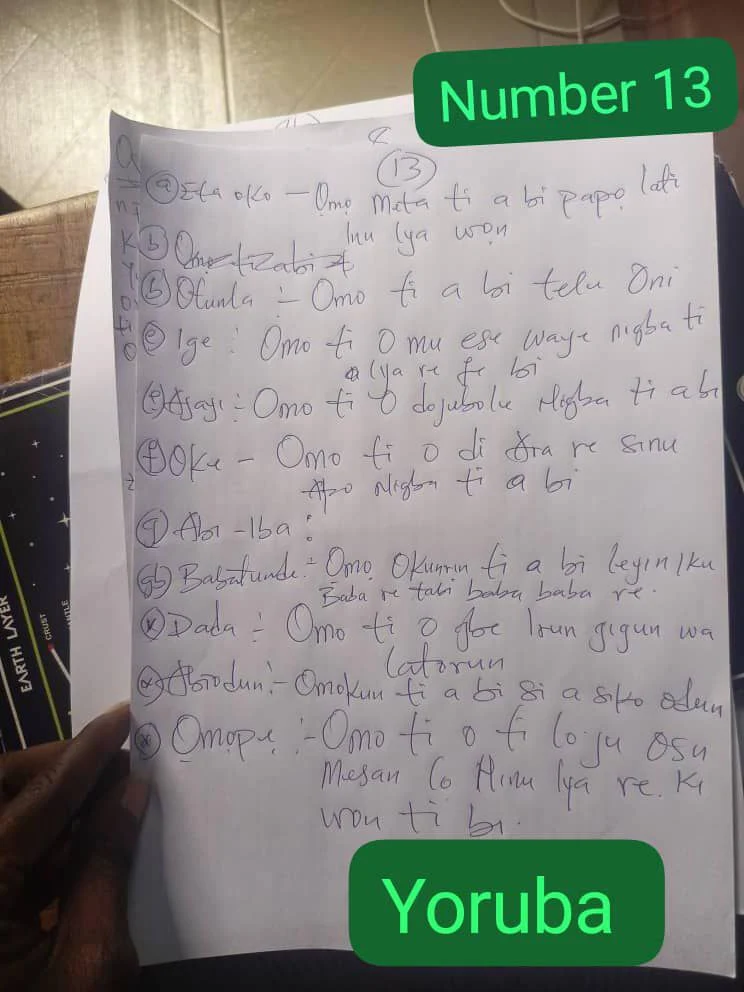 Number 13
13
(a) Eta oko – Omo meta ti a bi papọ lati
Inu Iya wọn
(b)
(b) Otunla :- Omo ti a bi telu Oni
(e) Ige : Omo ti O mu ese waye nigba ti
Iya re fe bi
(e) Ajayi :- Omo ti O dojubolu Nigba ti abi
(f) Oke – Omo ti O di Ara re sinu
Apo Nigba ti a bi
(g) Abi – Iba :
(gb) Babatunde :- Omo Okunrin ti a bi leyin Iku
Baba re tabi baba baba re.
Dada :- Omo ti O gbe Irun gigun wa
latorun
Abiodun :- Omokun ti a bi si asiko odun
Ọmọpẹ :- Omo ti o ti loju Osu
Mesan lo Ninu Iya re. Ki
won ti bi.
EARTH LAYER
CRUST
Yoruba